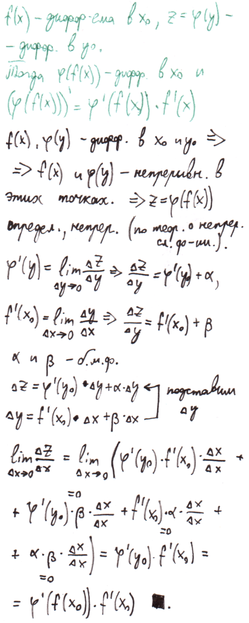 f(x) - дифф-ема в x₀, z = φ(y) -
- дифф. в y₀.
Тогда φ(f(x)) - дифф. в x₀ и
(φ(f(x)))' = φ'(f(x)) · f'(x)
f(x), φ(y) - дифф. в x₀ и y₀ ⇒
⇒ f(x) и φ(y) - непрерывн. в
этих точках. ⇒ z = φ(f(x))
определ., непрер. (по теор. о непрер.
сл. ф-ии.).
φ'(y) = lim Δy→0 Δz/Δy ⇒ Δz/Δy = φ'(y) + α,
f'(x₀) = lim Δx→0 Δy/Δx ⇒ Δz/Δy = f'(x₀) + β
α и β - б.м.ф.
Δz = φ'(y₀) · Δy + α · Δy
подставим
Δy = f'(x₀) · Δx + β · Δx
Δy
lim Δx→0 Δz/Δx = lim Δx→0 (φ'(y₀) · f'(x₀) · Δx/Δx +
+ φ'(y₀) · β · Δx/Δx + f'(x₀) · α · Δx/Δx +
=0 =0
+ α · β · Δx/Δx) = φ'(y₀) · f'(x₀) =
=0
= φ'(f(x₀)) · f'(x₀) ■.